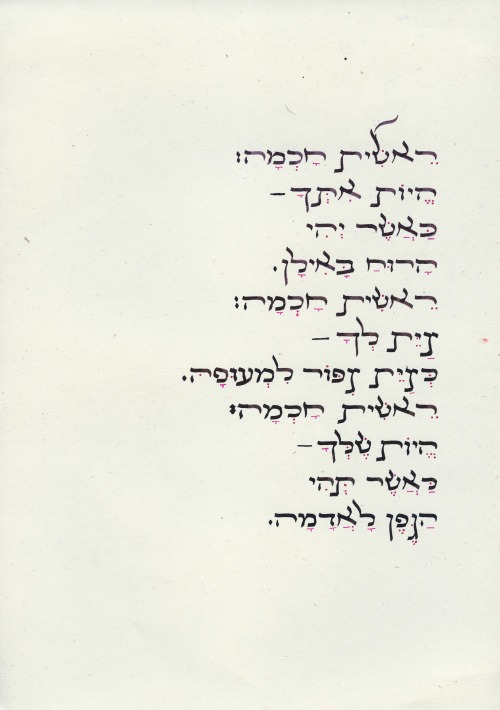 רֵאשִׁית חָכְמָה:
הֱיוֹת אִתְּךָ –
כַּאֲשֶׁר יְהִי
הָרוּחַ בָּאִילָן.
רֵאשִׁית חָכְמָה:
צַיֵּת לְךָ –
כְּצַיֵּת צִפּוֹר לִמְעוּפָהּ.
רֵאשִׁית חָכְמָה:
הֱיוֹת שֶׁלְּךָ –
כַּאֲשֶׁר תְּהִי
הַגֶּפֶן לָאֲדָמָה.